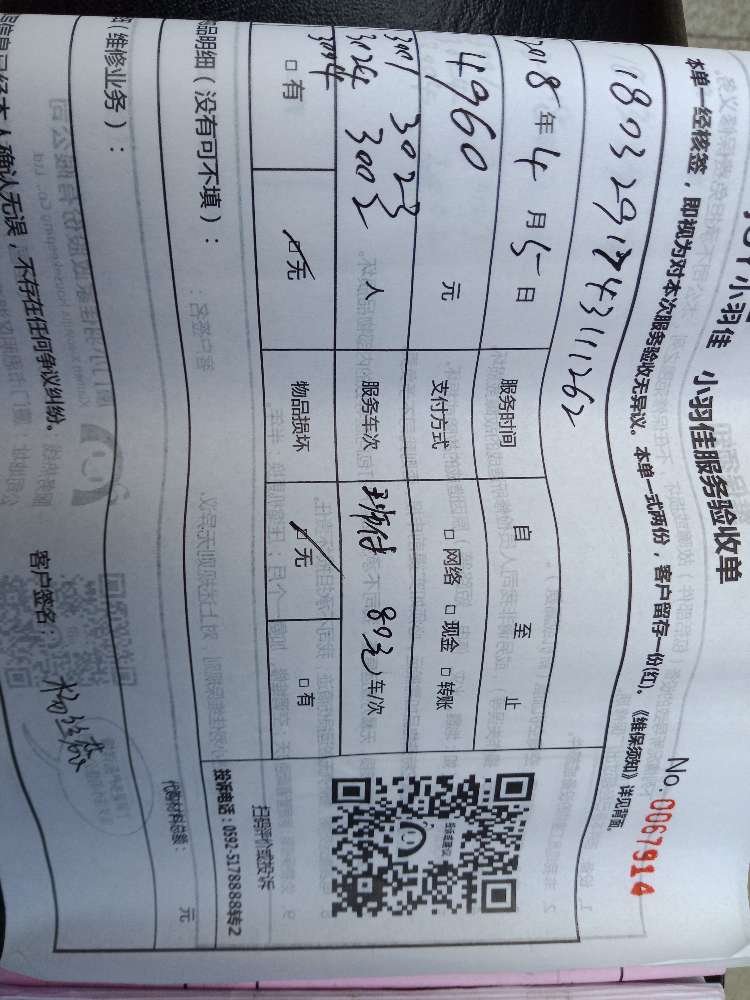 小羽佳 小羽佳服务验收单
No. 0067914
本单一经核签，即视为对本次服务验收无异议。本单一式两份，客户留存一份(红)。《维保须知》详见背面。
2018年4月5日 服务时间 自 至 止
4960 元 支付方式 □网络 □现金 □转账
3001 3023
3024 3002 人 服务车次 80元 车/次
3004
□有 □无 物品损坏 □无 □有
扫码评价或投诉
投诉电话：0592-5178888转2
品明细（没有可不填）：
代购材料总额： 元
（维修业务）：
信息已经本人确认无误，不存在任何争议纠纷。 客户签名：